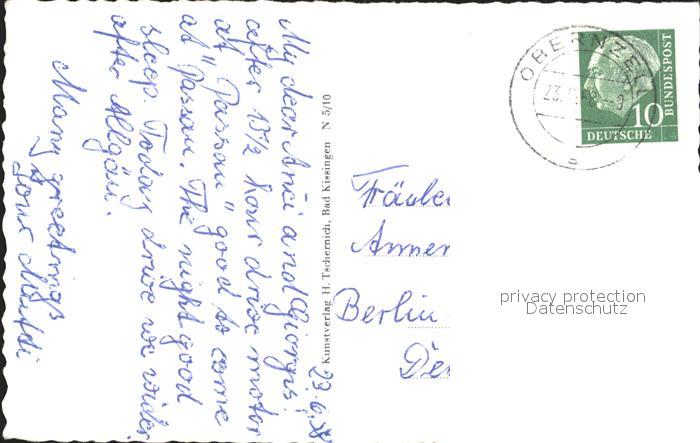 My dear Anei and Giorgis!
after 13½ hour drive motor
at "Passau" good to come
at Passau. The night good
sleep. Today drive we wider
after Allgäu.
Many greetings
Your Mutti
23.6.58
Kunstverlag H. Tschernich, Bad Kissingen N 5/10
OBERNZELL
a
10
DEUTSCHE
BUNDESPOST
Fräulei
Anner
Berlin-
privacy protection
Datenschutz